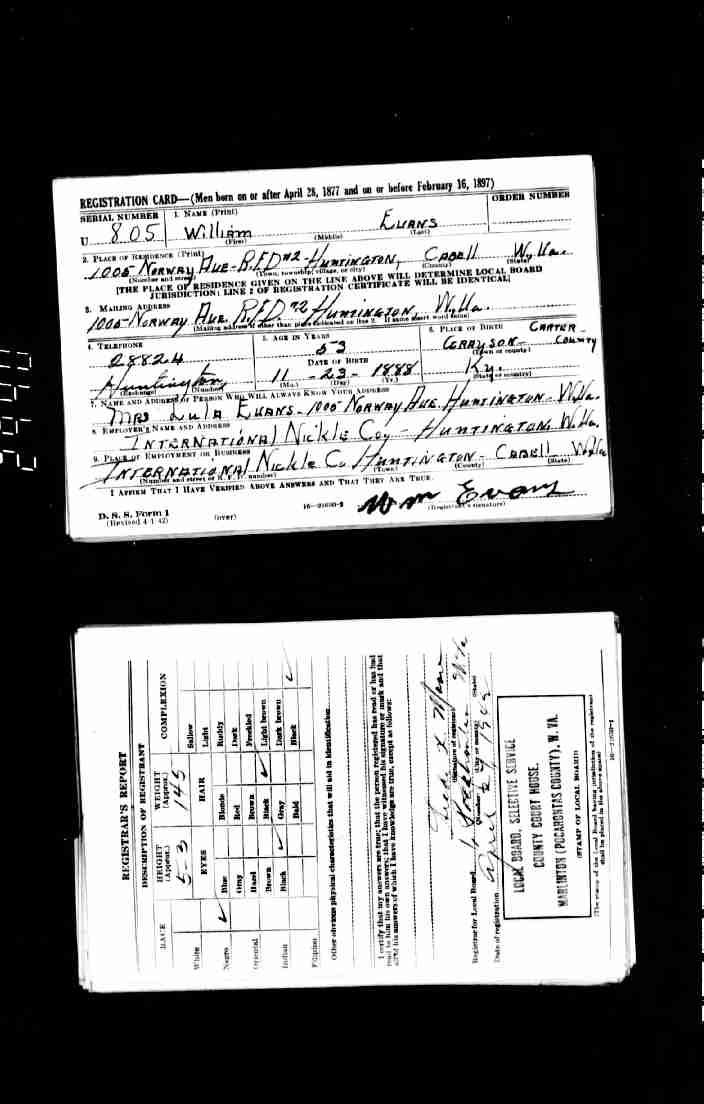 REGISTRATION CARD—(Men born on or after April 28, 1877 and on or before February 16, 1897)
SERIAL NUMBER 1. NAME (Print) ORDER NUMBER
U 805 William Evans
(First) (Middle) (Last)
2. PLACE OF RESIDENCE (Print)
1005 Norway Ave - R.F.D #2 - Huntington, Cabell W.Va.
(Number and street) (Town, township, village, or city) (County) (State)
[THE PLACE OF RESIDENCE GIVEN ON THE LINE ABOVE WILL DETERMINE LOCAL BOARD
JURISDICTION; LINE 2 OF REGISTRATION CERTIFICATE WILL BE IDENTICAL]
3. MAILING ADDRESS
1005 - Norway Ave R.F.D. #2 Huntington, W.Va.
(Mailing address if other than place indicated on line 2. If same insert word same)
4. TELEPHONE 5. AGE IN YEARS 6. PLACE OF BIRTH
28824 53 Grayson - Carter County
DATE OF BIRTH (Town or county)
Huntington, 11 - 23 - 1888 Ky.
(Exchange) (Number) (Mo.) (Day) (Yr.) (State or country)
7. NAME AND ADDRESS OF PERSON WHO WILL ALWAYS KNOW YOUR ADDRESS
Mrs Lula Evans - 1005 Norway Ave. Huntington - W.Va.
8. EMPLOYER'S NAME AND ADDRESS
International Nickle Coy - Huntington, W.Va.
9. PLACE OF EMPLOYMENT OR BUSINESS
International Nickle Co Huntington - Cabell W.Va
(Number and street or R. F. D. number) (Town) (County) (State)
I AFFIRM THAT I HAVE VERIFIED ABOVE ANSWERS AND THAT THEY ARE TRUE.
Wm Evans
D. S. S. Form 1
(Revised 4-1-42) (over) 16—21630-2 (Registrant's signature)
REGISTRAR'S REPORT
DESCRIPTION OF REGISTRANT
RACE HEIGHT (Approx.) WEIGHT (Approx.) COMPLEXION
5-3 145
White EYES HAIR Sallow
Light
Negro Blue Blonde Ruddy
Gray Red Dark
Oriental Hazel Brown Freckled
Brown Black Light brown
Indian Black Gray Dark brown
Bald Black
Filipino
Other obvious physical characteristics that will aid in identification
I certify that my answers are true; that the person registered has read or has had
read to him his own answers; that I have witnessed his signature or mark and that
all of his answers of which I have knowledge are true, except as follows:
(Signature of registrar)
Registrar for Local Board Pocahontas W Va
(Number) (City or county) (State)
Date of registration April
LOCAL BOARD, SELECTIVE SERVICE
COUNTY COURT HOUSE,
MARLINTON (POCAHONTAS COUNTY), W. VA.
(STAMP OF LOCAL BOARD)
(The stamp of the Local Board having jurisdiction of the registrant
shall be placed in the above space)